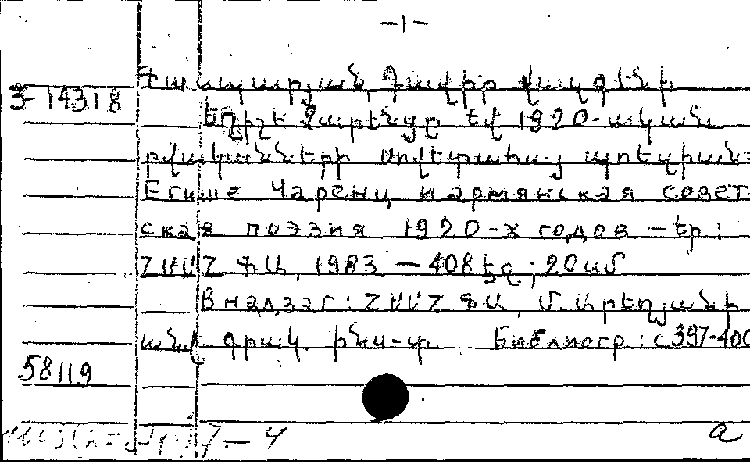 -1-
Գասպարյան Դավիթ Վազգենի
3-14318
Եղիշե Չարենցը եվ 1920-ական
թվականների սովետահայ պոեզիան=
Егише Чаренц и армянская совет
ская поэзия 1920-х годов – Եր:
ՀՍՍՀ ԳԱ, 1983 – 408 էջ; 20սմ
В надзаг: ՀՍՍՀ ԳԱ, Մ. Աբեղյանի
անվ. գրակ. ինս-տ. Библиогр: с 397-400
58119
- 4
a